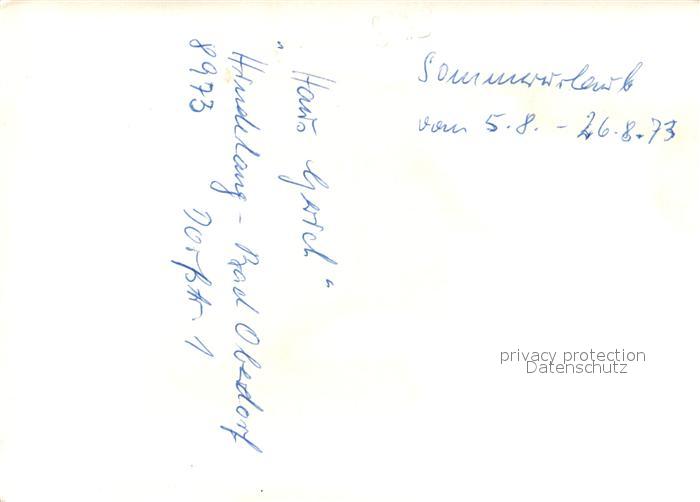 "Haus Gerich"
Hindelang - Bad Oberdorf
8973 Dorfstr. 1
Sommerurlaub
vom 5.8. - 26.8.73
privacy protection
Datenschutz